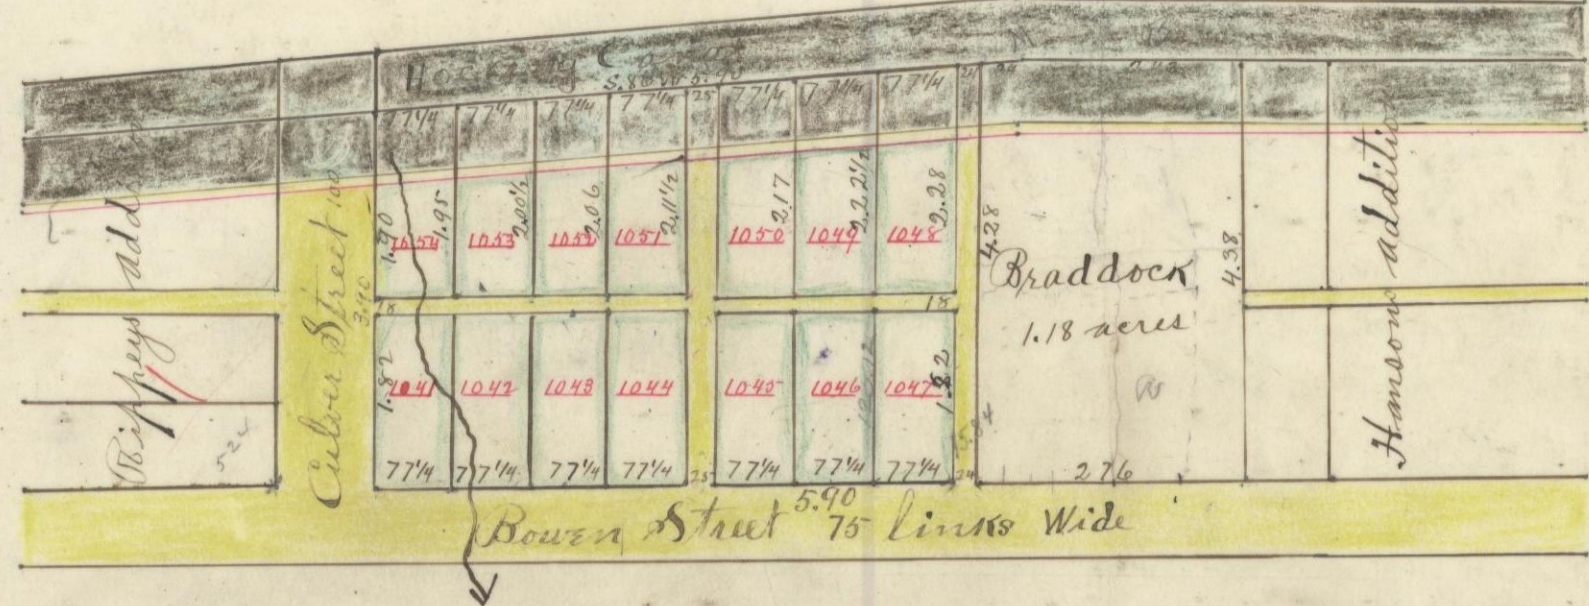 Hocking Canal
S.86W 5.90
77¼ 77¼ 77¼ 77¼ 25 77¼ 77¼ 77¼ 24
Rippeys add
Culver Street 100
3.90
1.90 1.95 2.00½ 2.06 2.11½ 2.17 2.22½ 2.28
1054 1053 1052 1051 1050 1049 1048
18 18
1.82 1041 1042 1043 1044 1045 1046 1047 1.82
77¼ 77¼ 77¼ 77¼ 25 77¼ 77¼ 77¼ 24
4.28
Braddock
1.18 acres
4.38
276
Hansons addition
524
5.90
Bowen Street 75 links Wide